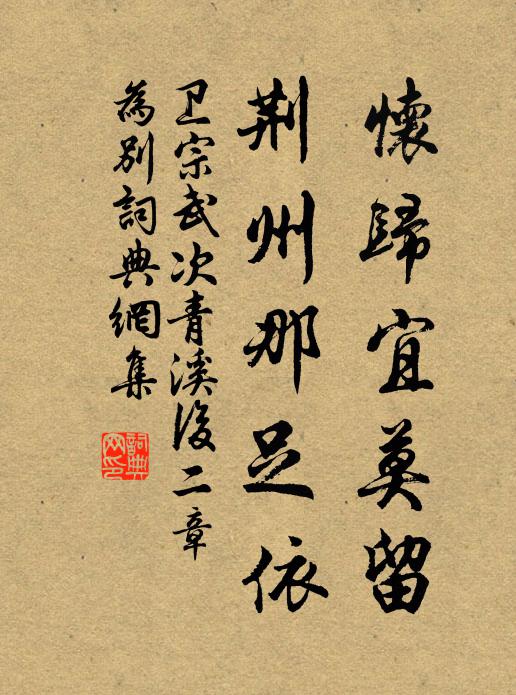 懷歸宜莫留
荆州那足依
卫宗武次青溪後二章
為別詞典網集
詞典網印